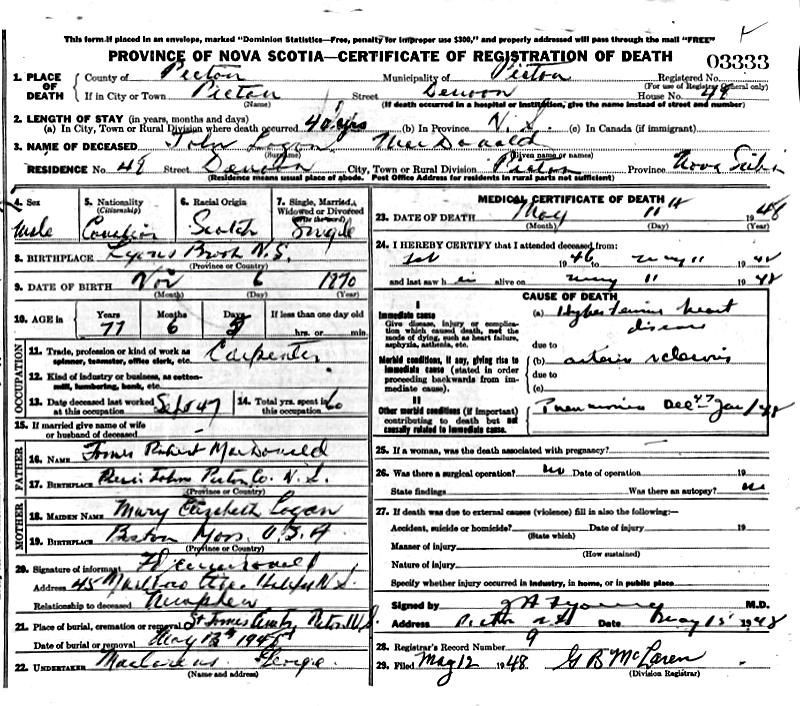 This form if placed in an envelope, marked "Dominion Statistics—Free, penalty for improper use $300," and properly addressed will pass through the mail "FREE"
PROVINCE OF NOVA SCOTIA—CERTIFICATE OF REGISTRATION OF DEATH 03333
1. PLACE OF DEATH County of Pictou Municipality of Pictou Registered No.
(For use of Registrar General only)
If in City or Town Pictou Street Denoon House No. 49
(Name) (If death occurred in a hospital or institution, give the name instead of street and number)
2. LENGTH OF STAY (in years, months and days)
(a) In City, Town or Rural Division where death occurred 40 yrs (b) In Province N.S. (c) In Canada (if immigrant)
3. NAME OF DECEASED John Logan MacDonald
(Surname) (Given name or names)
RESIDENCE No. 49 Street Denoon City, Town or Rural Division Pictou Province Nova Scotia
(Residence means usual place of abode. Post Office Address for residents in rural parts not sufficient)
4. Sex 5. Nationality (Citizenship) 6. Racial Origin 7. Single, Married, Widowed or Divorced (Write the word)
Male Canadian Scotch Single
8. BIRTHPLACE Lyons Brook N.S.
(Province or Country)
9. DATE OF BIRTH Nov 6 1870
(Month) (Day) (Year)
10. AGE in Years Months Days If less than one day old
77 6 5 hrs. or min.
OCCUPATION
11. Trade, profession or kind of work as spinner, teamster, office clerk, etc. Carpenter
12. Kind of industry or business, as cotton-mill, lumbering, bank, etc.
13. Date deceased last worked at this occupation Sept 47 14. Total yrs. spent in this occupation 60
15. If married give name of wife or husband of deceased —
FATHER
16. NAME James Robert MacDonald
17. BIRTHPLACE River John Pictou Co. N.S.
(Province or Country)
MOTHER
18. MAIDEN NAME Mary Elizabeth Logan
19. BIRTHPLACE Boston Mass. U.S.A
(Province or Country)
20. Signature of informant
Address 45 Halifax N.S.
Relationship to deceased Nephew
21. Place of burial, cremation or removal St James Pictou N.S.
Date of burial or removal May 13th 1948
22. UNDERTAKER George
(Name and address)
MEDICAL CERTIFICATE OF DEATH
23. DATE OF DEATH May 11 1948
(Month) (Day) (Year)
24. I HEREBY CERTIFY that I attended deceased from:
1st 1946 to May 11 1948
and last saw him alive on May 11 1948
CAUSE OF DEATH
I
Immediate cause
Give disease, injury or complication which caused death, not the mode of dying, such as heart failure, asphyxia, asthenia, etc.
(a) Hypertensive heart disease
due to
Morbid conditions, if any, giving rise to immediate cause (stated in order proceeding backwards from immediate cause).
(b) arterio sclerosis
due to
(c)
II
Other morbid conditions (if important) contributing to death but not causally related to immediate cause.
Pneumonia Dec 47 Jan/48
25. If a woman, was the death associated with pregnancy?
26. Was there a surgical operation? no Date of operation 19
State findings Was there an autopsy? no
27. If death was due to external causes (violence) fill in also the following:—
Accident, suicide or homicide? Date of injury 19
(State which)
Manner of injury
(How sustained)
Nature of injury
Specify whether injury occurred in industry, in home, or in public place
Signed by M.D.
Address Pictou N.S. Date May 15 1948
28. Registrar's Record Number 9
29. Filed May 12 1948 G B McLaren
(Division Registrar)